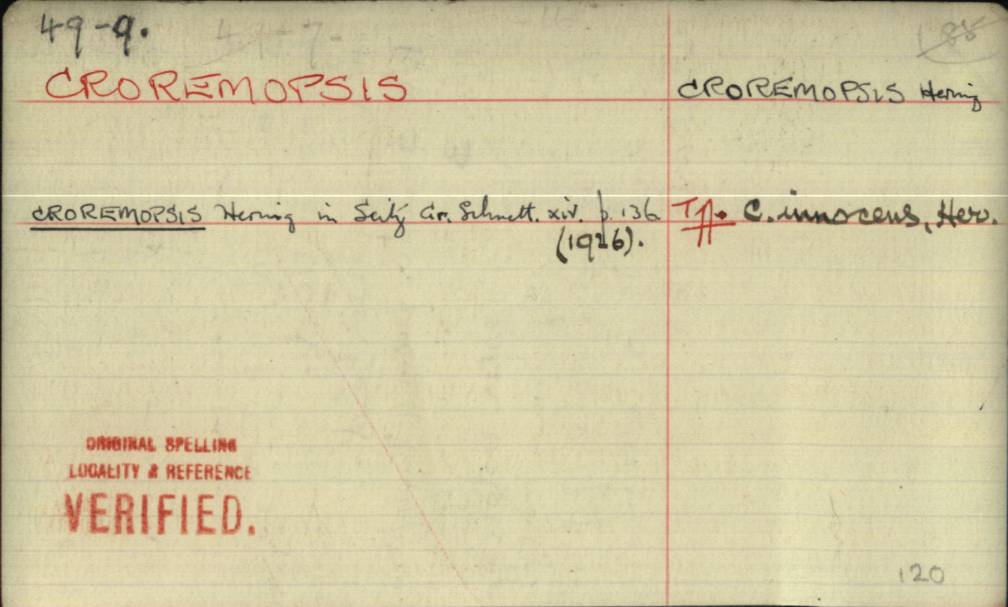 49-9.
188
CROREMOPSIS
CROREMOPSIS Hering
CROREMOPSIS Hering in Seitz Gr. Schmett. xiv. p. 136
(1926).
Tp. C. innocens, Her.
ORIGINAL SPELLING
LOCALITY & REFERENCE
VERIFIED.
120